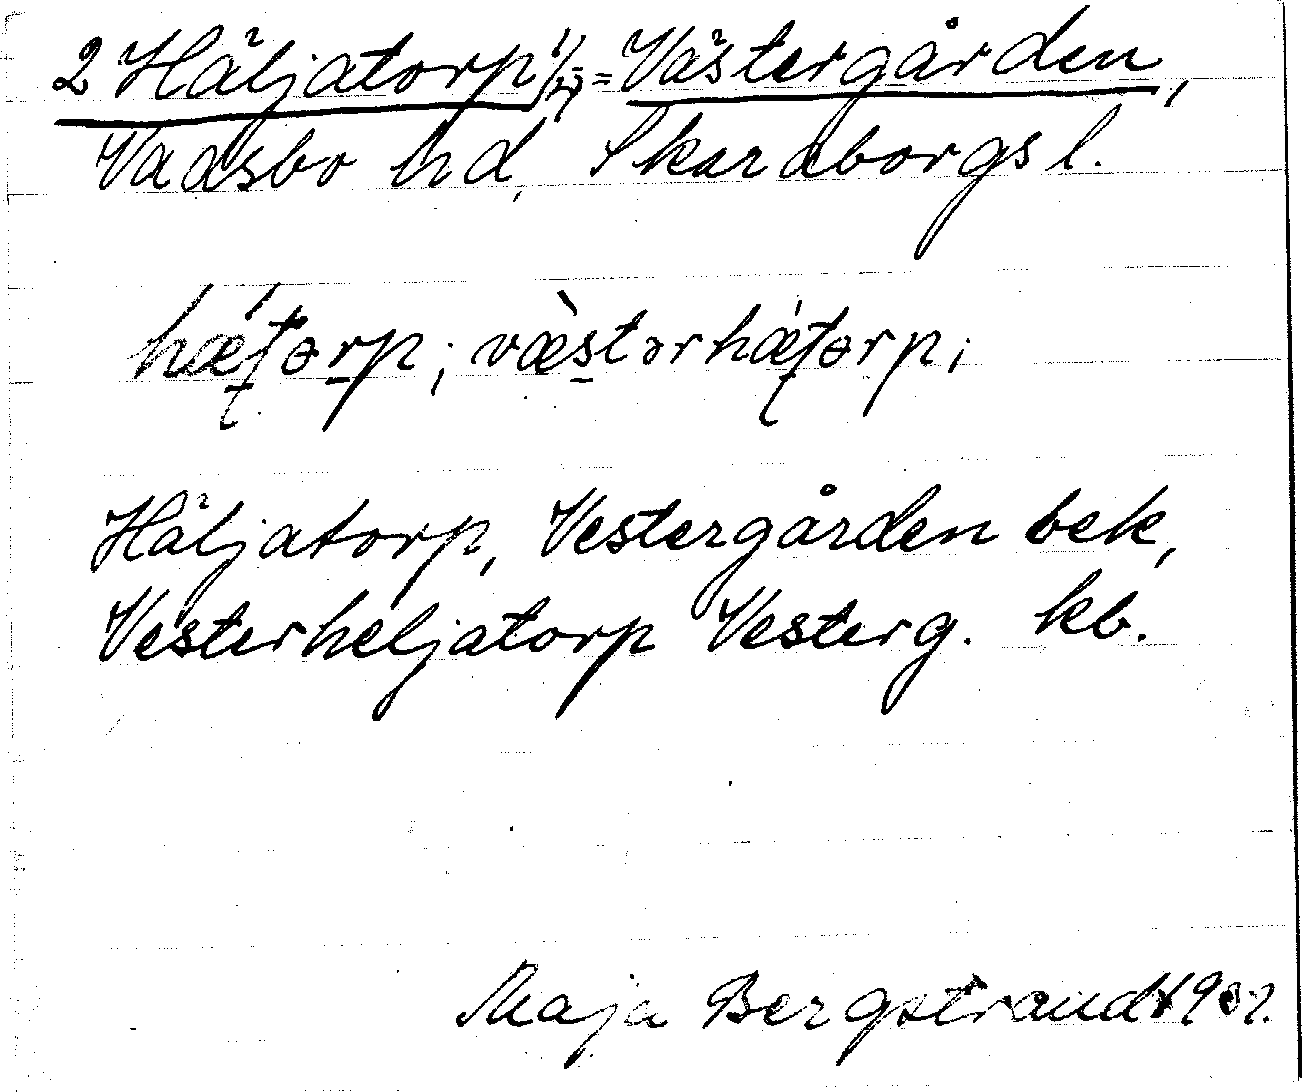 2 Häljatorp 1/27 = Västergården,
Vadsbo hd, Skaraborgs l.
hǽtərp; væ̀stərhǽtərp;
Häljatorp, Vestergården bek,
Vesterheljatorp Vesterg. kb.
Maja Bergstrand 1932.